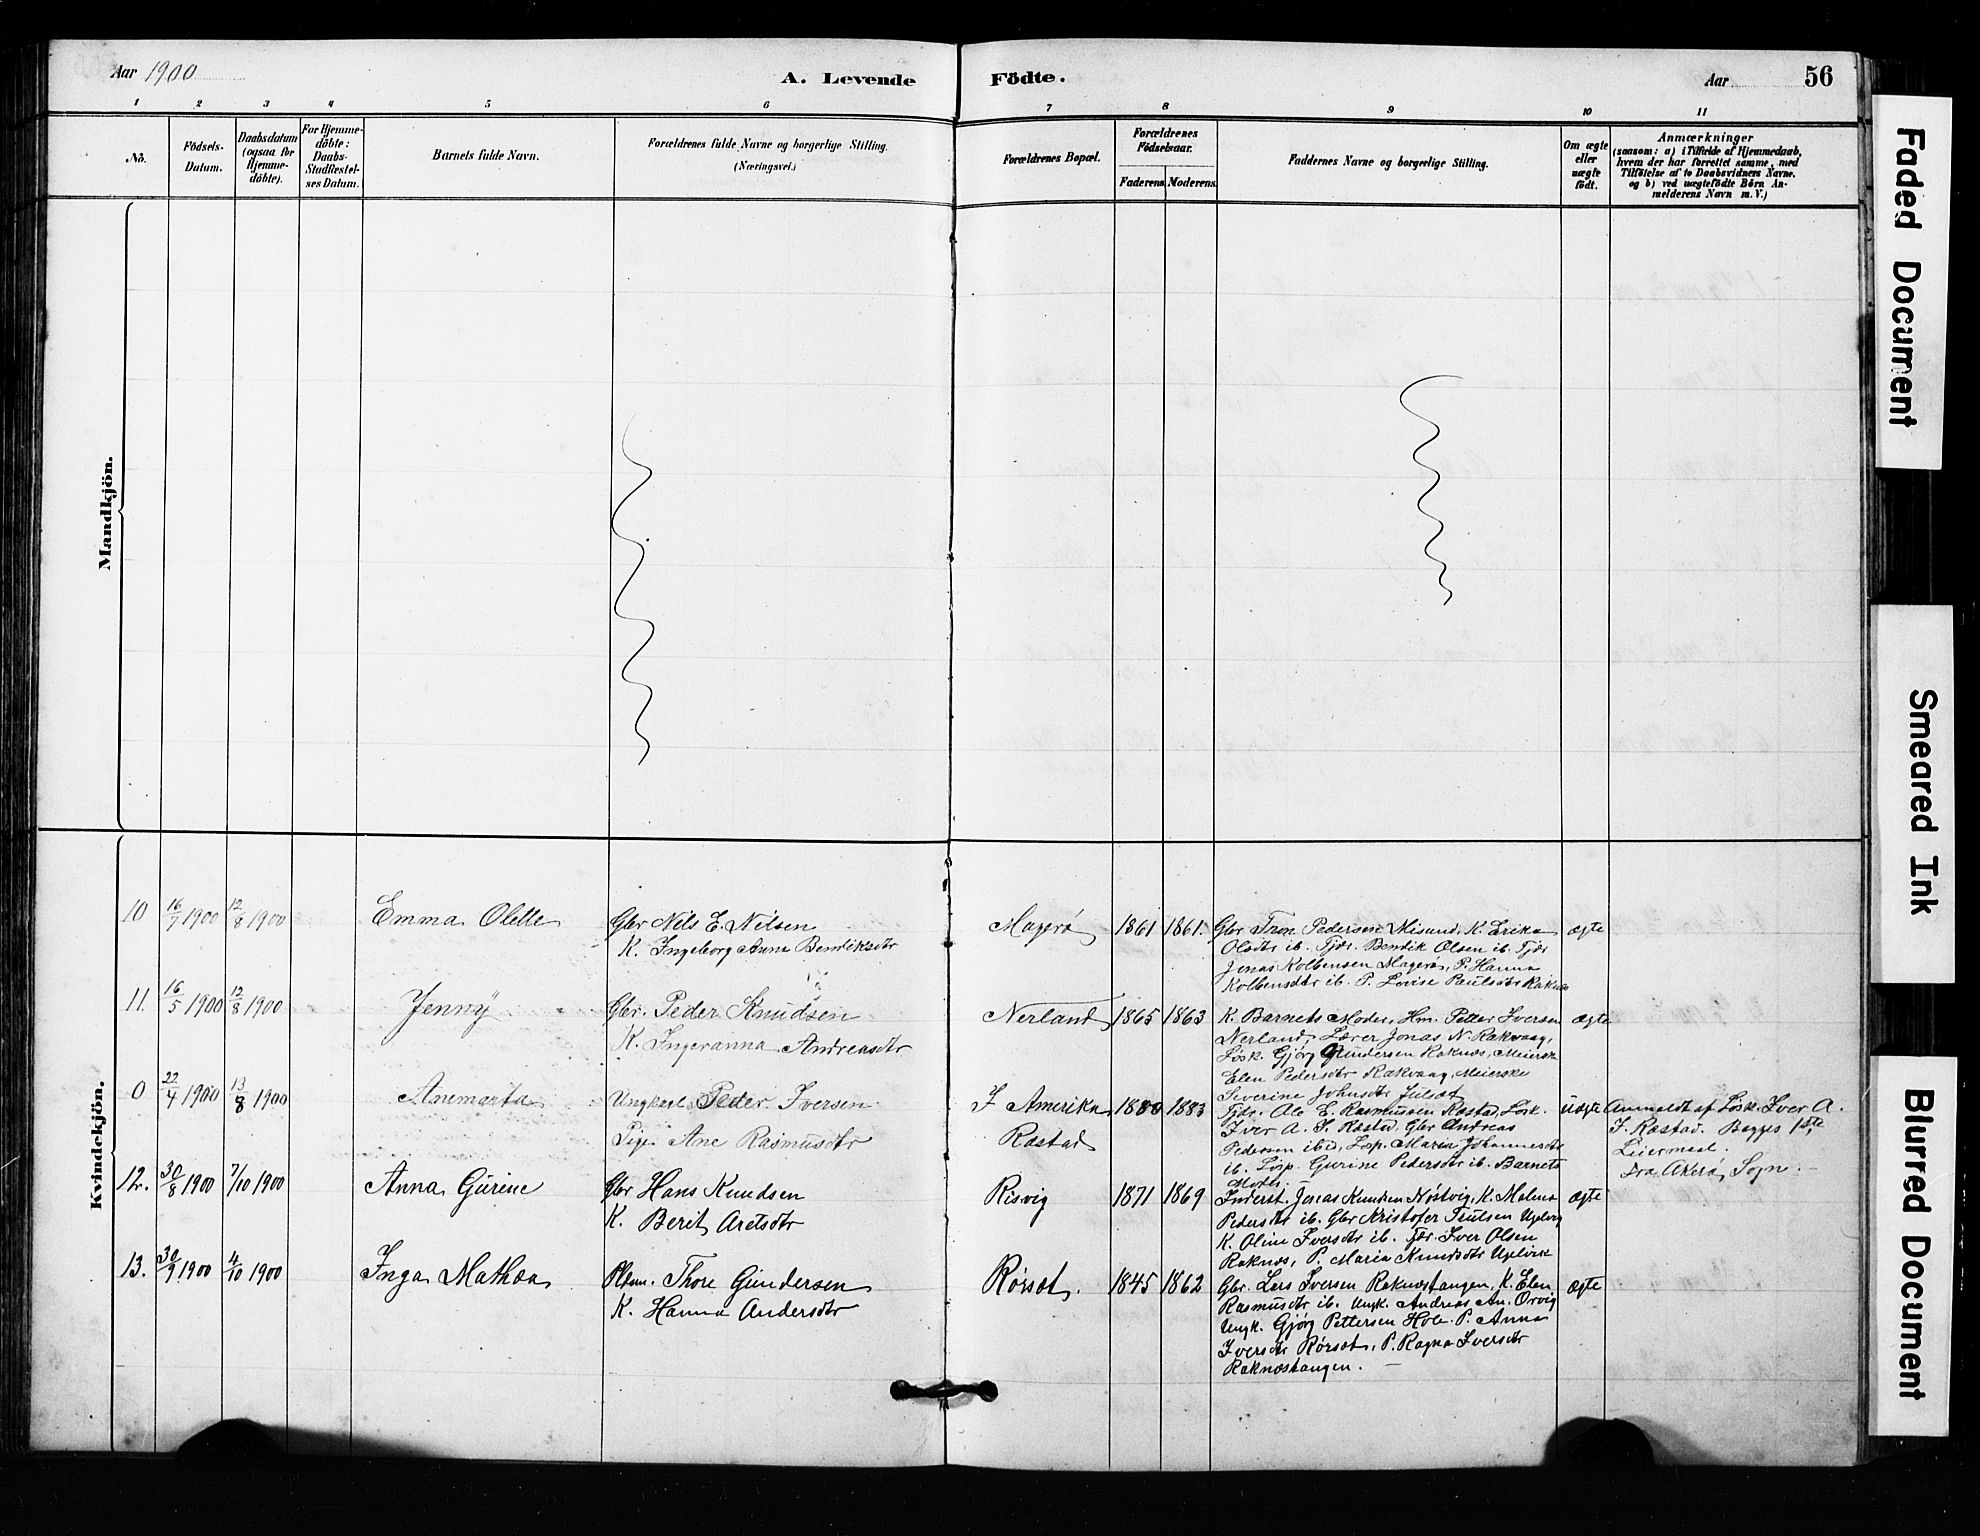 Aar 1900
A. Levende Födte.
Aar
56
1 2 3 4 5 6 7 8 9 10 11
No.
Födsels-
Datum.
Daabsdatum
(ogsaa for
Hjemme-
döbte).
For Hjemme-
döbte:
Daabs-
Stadfæstel-
ses Datum.
Barnets fulde Navn.
Forældrenes fulde Navne og borgerlige Stilling.
(Næringsvei.)
Forældrenes Bopæl.
Forældrenes
Födselsaar.
Faderens Moderens
Faddernes Navne og borgerlige Stilling.
Om ægte
eller
uægte
födt.
Anmærkninger
(saasom: a) i Tilfælde af Hjemmedaab,
hvem der har forrettet samme, med
Tilföielse af to Daabsvidners Navne,
og b) ved uægtefödte Börn An-
melderens Navn m. V.)
Mandkjön.
Kvindekjön.
10 16/7 1900 12/8 1900 Emma Olette
Gbr Nils E. Nilsen
K. Ingeborg Anne Bendiksdtr
Magerø 1861 1861.
Gbr Tron Pedersen Misund, K. Erika
Olsdtr ib. Tjdr. Bendik Olsen ib. Tjdr
Jonas Kolbensen Magerø, P. Hanna
Kolbensdtr ib. P. Lovise Paulsdtr Raknæs
ægte
11. 16/5 1900 12/8 1900 Jenny
Gbr. Peder Knudsen
K. Ingeranna Andreasdtr
Nerland 1865 1863
K. Barnets Moder, Hm. Petter Iversen
Nerland, Lærer Jonas N. Rakvaag,
Løsk. Gjørg Gundersen Raknæs, Meierske
Elen Pedersdtr Rakvaag, Meierske
Severine Johnsdtr Julset
ægte
0 22/4 1900 13/8 1900 Anemarta
Ungkarl Peder Iversen
Pige Ane Rasmusdtr
I Amerika
Røstad
1880 1883
Tjdr. Ole E. Rasmussen Røstad, Løsk.
Iver A. I. Røstad. Gbr Andreas
Pedersen ibid, Løsp. Maria Johannesdtr
ib. Løsp. Gurine Pedersdtr ib. Barnets
Moder.
uægte
Anmeldt af Løsk. Iver A.
I. Røstad. Begges 1ste
Leiermaal.
fra Akerø Sogn.
12. 30/8 1900 7/10 1900 Anna Gurine
Gbr Hans Knudsen
K. Berit Aretsdtr
Risvig 1871 1869
Inderst Jonas Knudsen Nøstvig, K. Malena
Pedersdtr ib. Gbr Kristofer Trulsen Ugelvig
K. Oline Iversdtr ib. Tjdr. Iver Olsen
Raknæs, P. Maria Knudsdtr Ugelvik
ægte
13. 30/9 1900 4/10 1900 Inga Mathea
Plsm. Thore Gundersen
K. Hanna Andersdtr
Rørset. 1845 1862
Gbr. Lars Iversen Raknestangen, K. Elen
Rasmusdtr ib. Ungk. Andreas An. Orvig
Ungk. Gjørg Pettersen Hole. P. Anna
Iversdtr Rørset, P. Ragna Iversdtr
Raknestangen.
ægte
Faded Document
Smeared Ink
Blurred Document